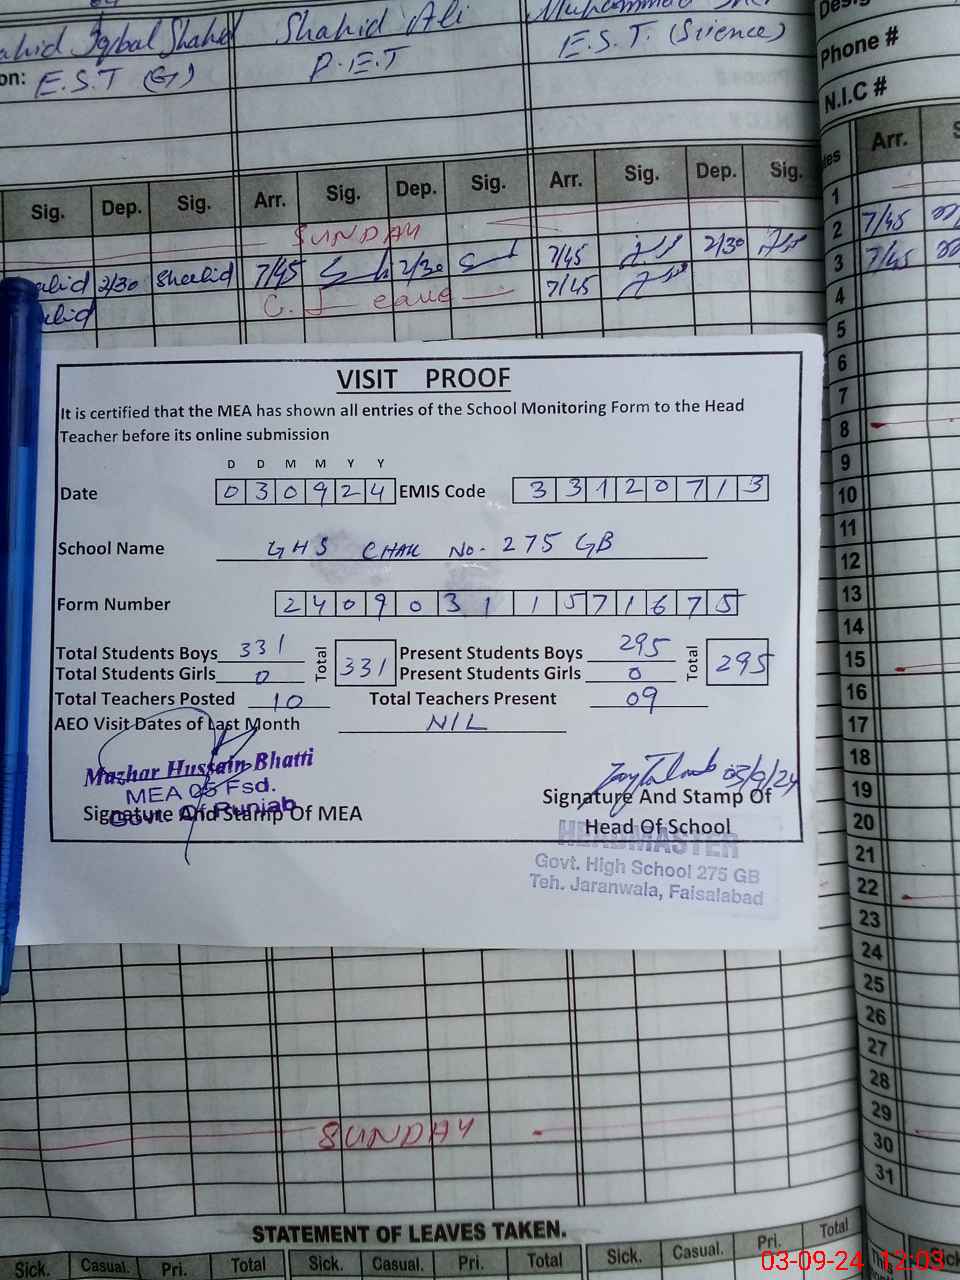 Iqbal Shahid Shahid Ali Muhammad
on: E.S.T (G) P.E.T E.S.T. (Science)
Phone #
N.I.C #
Sig. Dep. Sig. Arr. Sig. Dep. Sig. Arr. Sig. Dep. Sig. Arr.
SUNDAY
1
2/30 Shahid 7/45 2/30 7/45 2/30 2 7/45
C. Leave 7/45 3 7/45
4
5
6
7
8
9
10
11
12
13
14
15
16
17
18
19
20
21
22
23
24
25
26
27
28
29
30
31
VISIT PROOF
It is certified that the MEA has shown all entries of the School Monitoring Form to the Head
Teacher before its online submission
D D M M Y Y
Date 030924 EMIS Code 33120713
School Name GHS CHAK No. 275 GB
Form Number 24090311571675
Total Students Boys 331 Total 331 Present Students Boys 295 Total 295
Total Students Girls 0 Present Students Girls 0
Total Teachers Posted 10 Total Teachers Present 09
AEO Visit Dates of Last Month NIL
Mazhar Hussain Bhatti
MEA 05 Fsd.
Govt. Of Punjab
Signature And Stamp Of MEA
03/9/24
Signature And Stamp Of
Head Of School
HEADMASTER
Govt. High School 275 GB
Teh. Jaranwala, Faisalabad
SUNDAY
STATEMENT OF LEAVES TAKEN.
Sick. Casual. Pri. Total Sick. Casual. Pri. Total Sick. Casual. Pri. Total
03-09-24 12:03